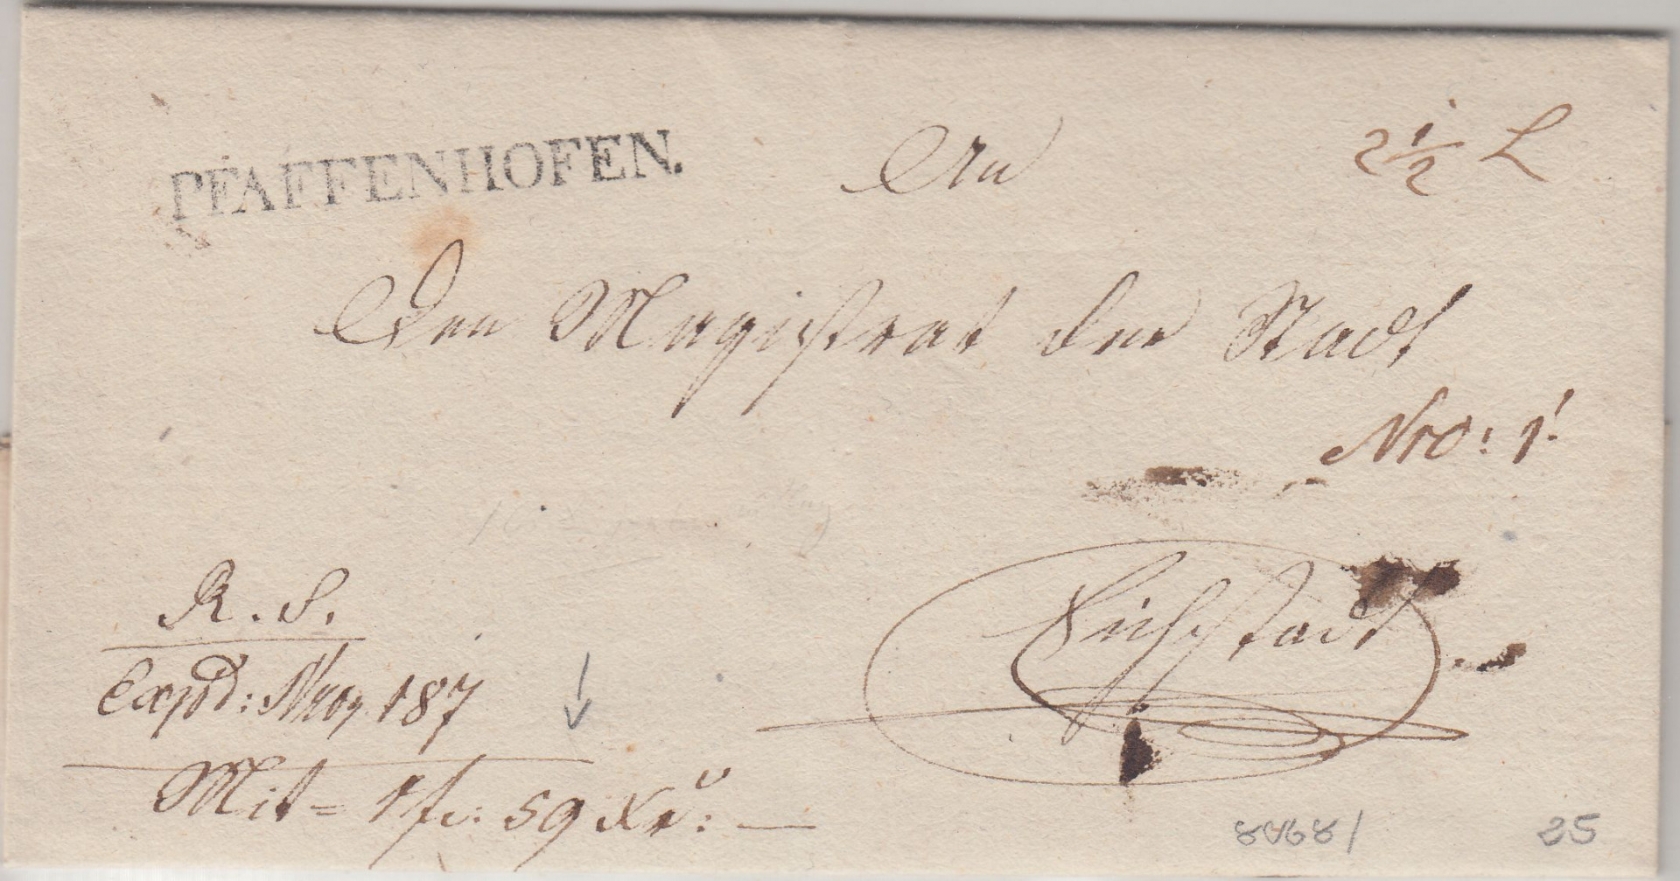 PFAFFENHOFEN.
An
2 1/2 L
Den Magistrat der Stadt
Nro: 1.
Eichstadt
R. S.
Expd: Nro 187
Mit = 1 fl: 59 Xr:
25